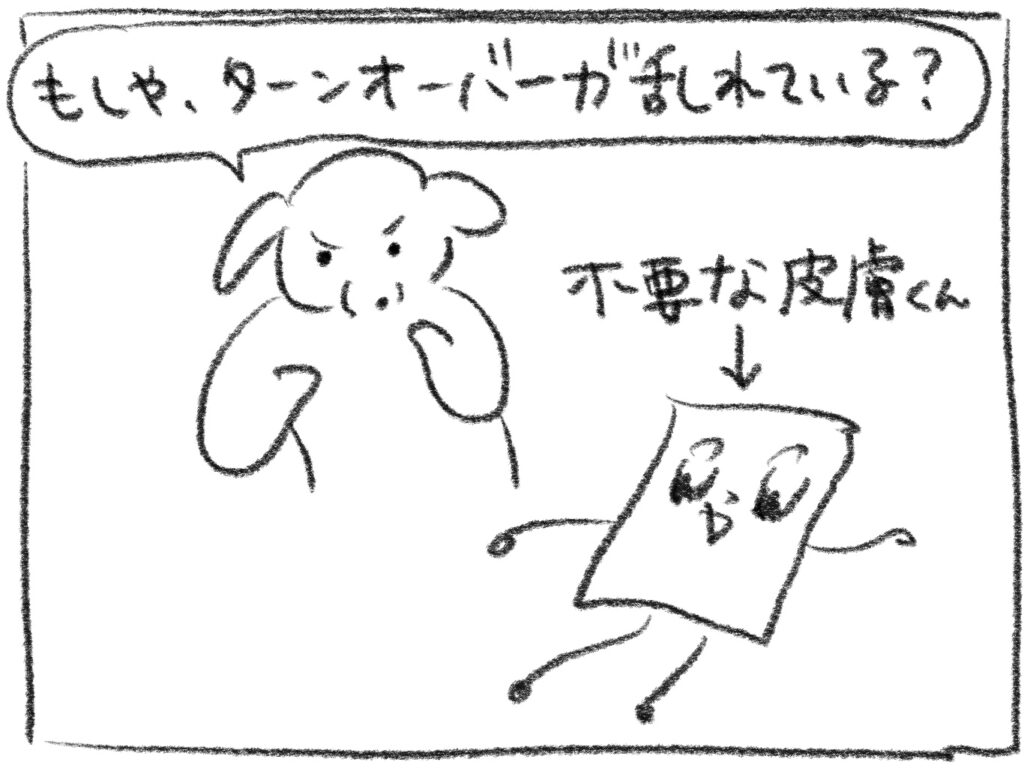 もしや、ターンオーバーが乱れている?
不要な皮膚くん